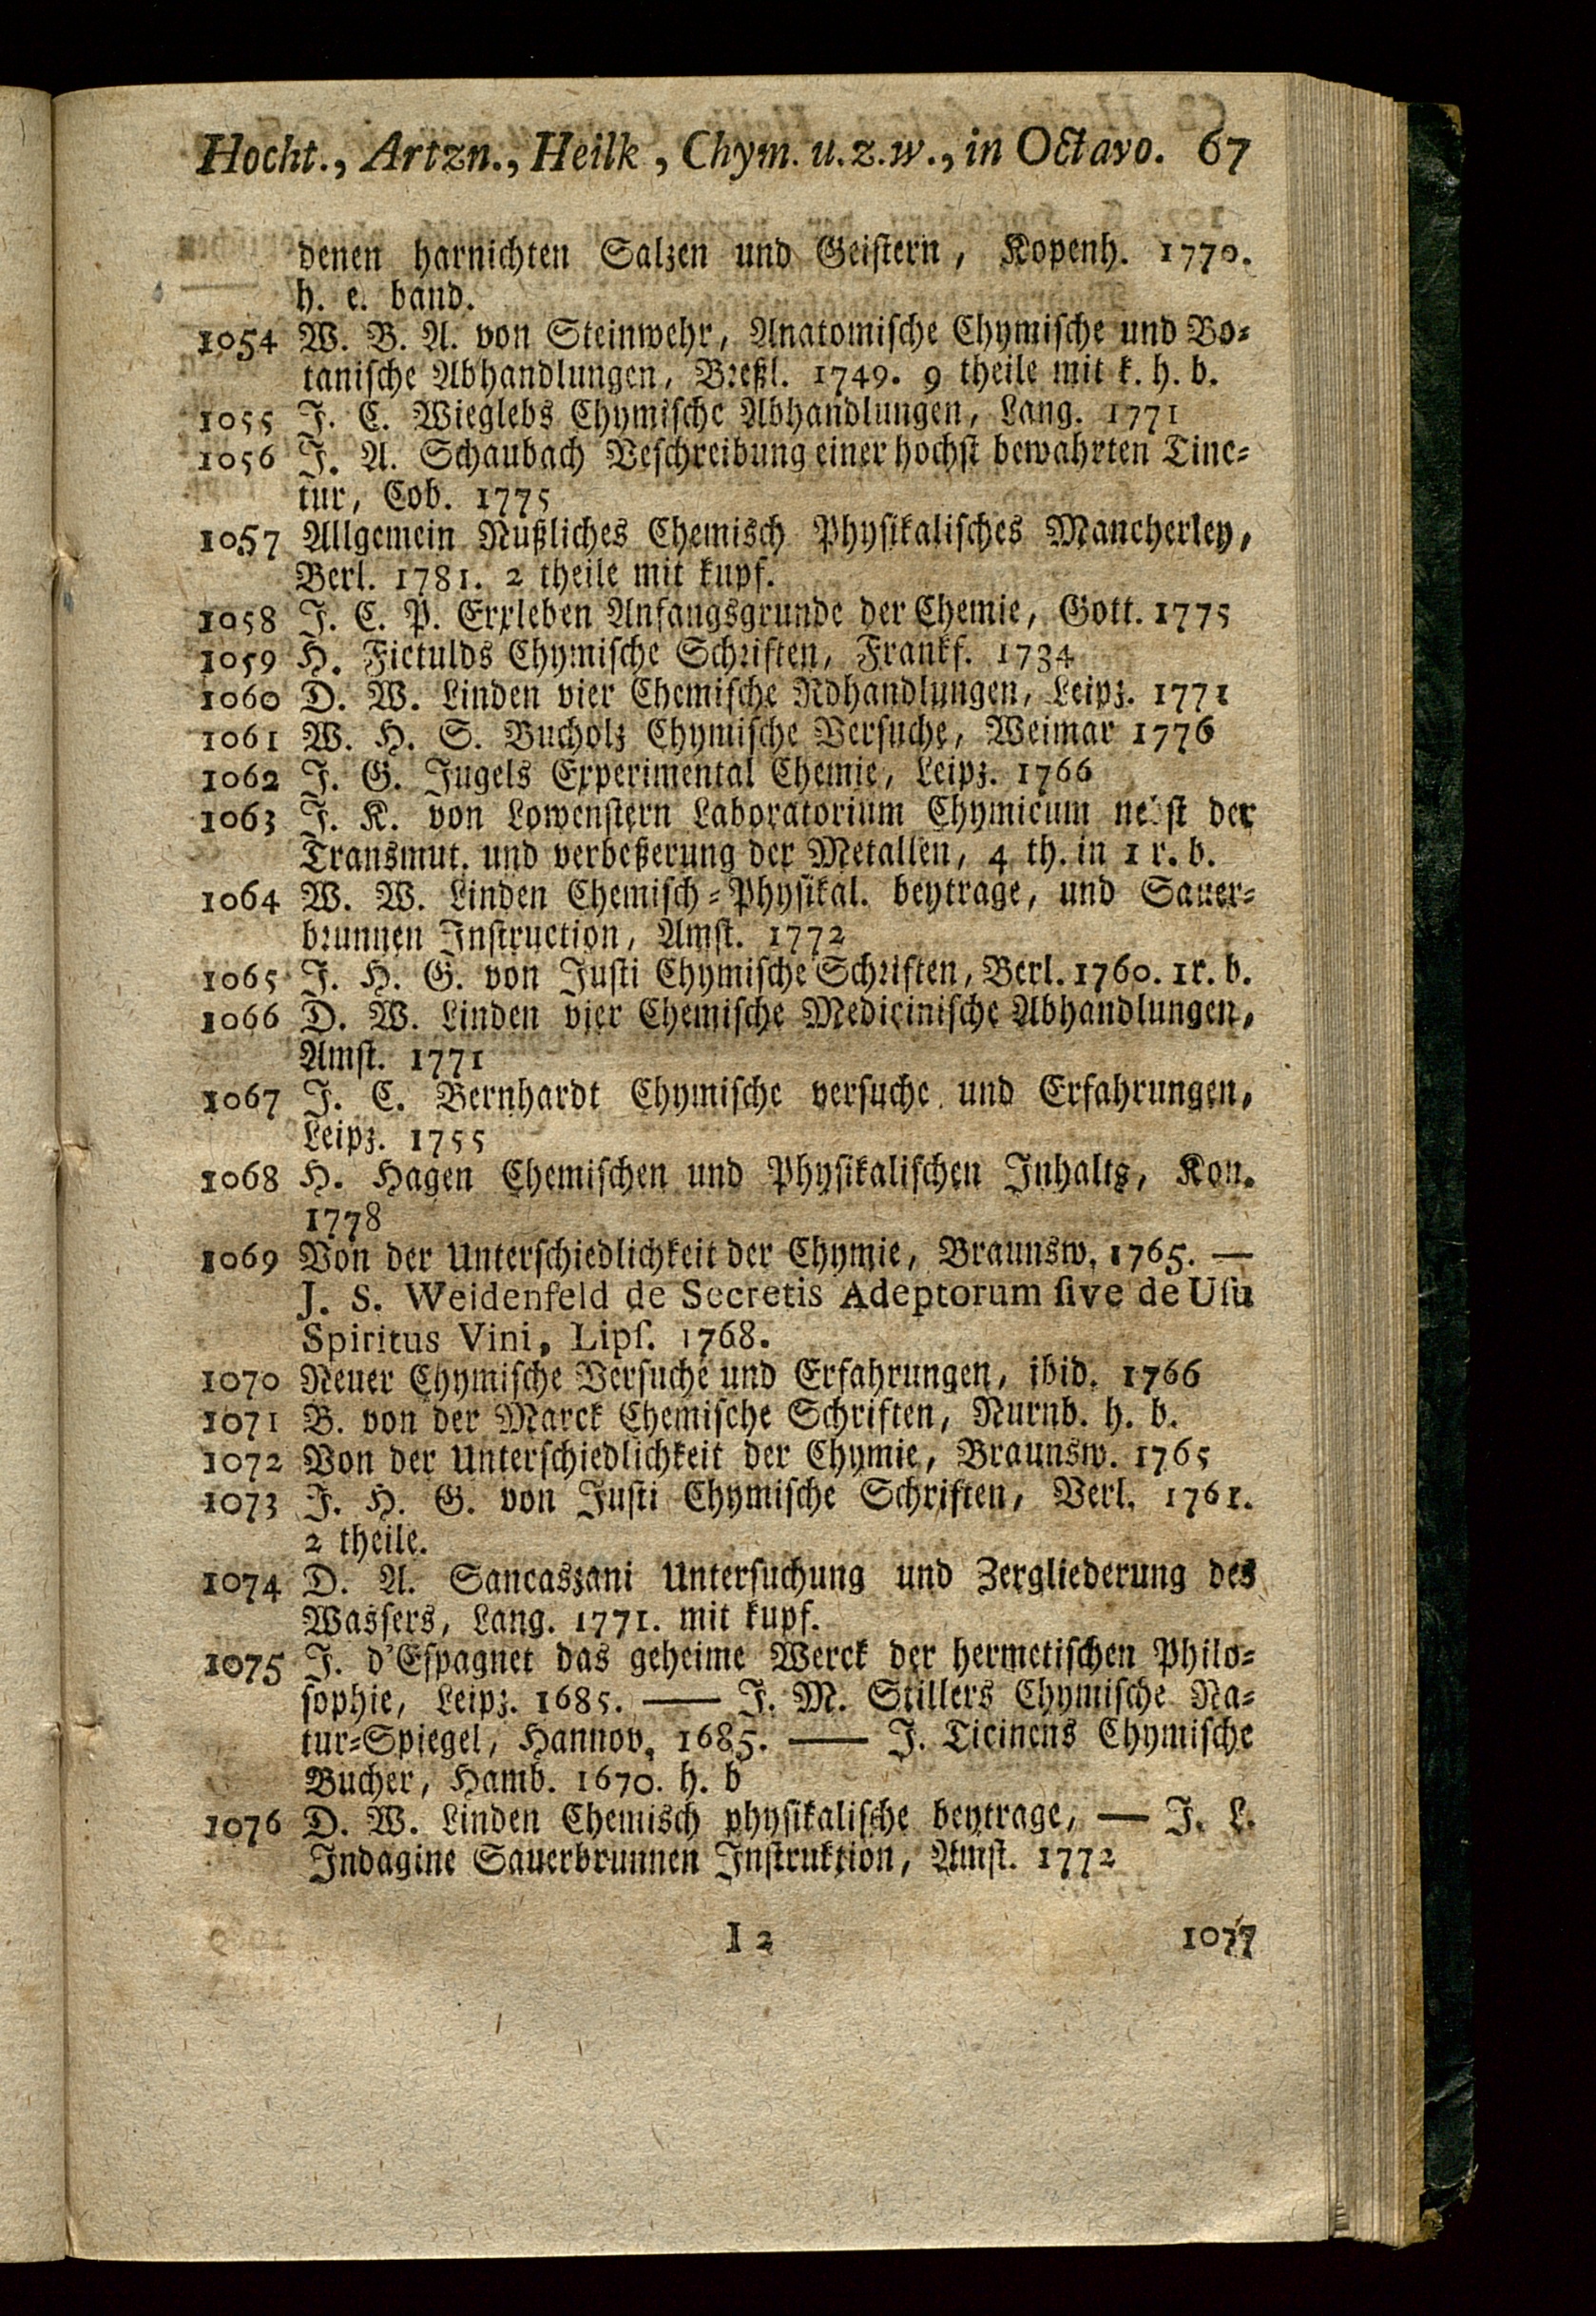 Hocht., Artzn., Heilk, Chym. u. z. w., in Octavo. 67
denen harnichten Salzen und Geistern, Kopenh. 1770.
h. e. band.
1054 W. B. A. von Steinwehr, Anatomische Chymische und Bo-
tanische Abhandlungen, Breßl. 1749. 9 theile mit k. h. b.
1055 J. C. Wieglebs Chymische Abhandlungen, Lang. 1771
1056 J. A. Schaubach Veschreibung einer hochst bewahrten Tinc-
tur, Cob. 1775
1057 Allgemein Nußliches Chemisch Physikalisches Mancherley,
Berl. 1781. 2 theile mit kupf.
1058 J. C. P. Erxleben Anfangsgrunde der Chemie, Gott. 1775
1059 H. Fictulds Chymische Schriften, Frankf. 1734
1060 D. W. Linden vier Chemische Rdhandlungen, Leipz. 1771
1061 W. H. S. Bucholz Chymische Versuche, Weimar 1776
1062 J. G. Jugels Experimental Chemie, Leipz. 1766
1063 J. K. von Lowenstern Laboratorium Chymicum nebst der
Transmut. und verbeßerung der Metallen, 4 th. in 1 r. b.
1064 W. W. Linden Chemisch-Physikal. beytrage, und Sauer-
brunnen Instruction, Amst. 1772
1065 J. H. G. von Justi Chymische Schriften, Berl. 1760. 1r. b.
1066 D. W. Linden vier Chemische Medicinische Abhandlungen,
Amst. 1771
1067 J. C. Bernhardt Chymische versuche und Erfahrungen,
Leipz. 1755
1068 H. Hagen Chemischen und Physikalischen Inhalts, Kon.
1778
1069 Von der Unterschiedlichkeit der Chymie, Braunsw. 1765. —
J. S. Weidenfeld de Secretis Adeptorum ſive de Uſu
Spiritus Vini, Lipſ. 1768.
1070 Neuer Chymische Versuche und Erfahrungen, ibid. 1766
1071 B. von der Marck Chemische Schriften, Nurnb. h. b.
1072 Von der Unterschiedlichkeit der Chymie, Braunsw. 1765
1073 J. H. G. von Justi Chymische Schriften, Verl. 1761.
2 theile.
1074 D. A. Sancaszani Untersuchung und Zergliederung des
Wassers, Lang. 1771. mit kupf.
1075 J. d'Espagnet das geheime Werck der hermetischen Philo-
sophie, Leipz. 1685. — J. M. Stillers Chymische Na-
tur-Spiegel, Hannov. 1685. — J. Ticinens Chymische
Bucher, Hamb. 1670. h. b
1076 D. W. Linden Chemisch physikalische beytrage, — J. L.
Indagine Sauerbrunnen Instruktion, Amst. 1772
I 2 1077